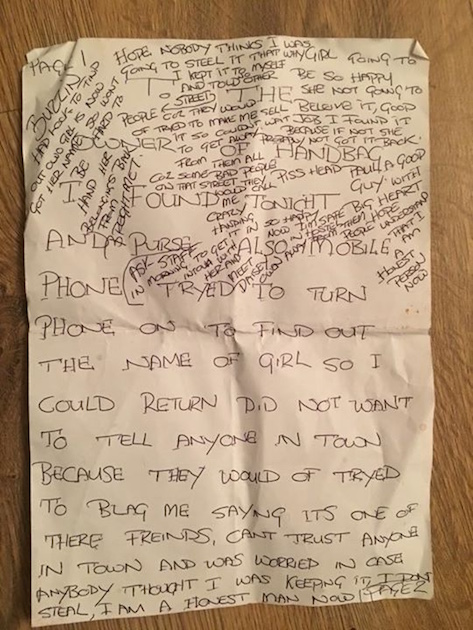 PAGE 1
HOPE NOBODY THINKS I WAS
GOING TO STEEL IT THAT WHY GIRL GOING TO
I KEPT IT TO MYSELF BE SO HAPPY
AND TOLD OTHER SHE NOT GOING TO
STREET BELEIVE IT, GOOD
PEOPLE COZ THEY WOULD JOB I FOUND IT
OF TRYED TO MAKE ME SELL BECAUSE IF NOT SHE
IT SO COULDN'T WAIT PROBABLY NOT GOT IT BACK.
TO GET AWAY
FROM THEM ALL
COZ SOME BAD PEOPLE PISS HEAD PAUL A GOOD
ON THAT STREET THEY GUY WITH
WOULD SELL BIG HEART
CRAZY
HANDING
IT IN SO HAPPY
NOW ITS SAFE
HOPE
PEOPLE UNDERSTAND
THAT I
AM
A
HONEST
PERSON
NOW
HAD LOOK TO FIND
OUT OWN GIRL IS NOW
GOT HER NAME SO
BE
HAND HER
BELONGINGS BACK
FROM ME
TO THE
OWNER OF HANDBAG
I FOUND TONIGHT
AND PURSE ALSO MOBILE
ASK STAFF
IN MORNING TO GET
INTOUCH WITH
HER AND
MEET
PHONE TRYED TO TURN
PHONE ON TO FIND OUT
THE NAME OF GIRL SO I
COULD RETURN DID NOT WANT
TO TELL ANYONE IN TOWN
BECAUSE THEY WOULD OF TRYED
TO BLAG ME SAYING ITS ONE OF
THERE FREINDS, CANT TRUST ANYONE
IN TOWN AND WAS WORRIED IN CASE
ANYBODY THOUGHT I WAS KEEPING IT I DONT
STEAL, I AM A HONEST MAN NOW! PAGE 2